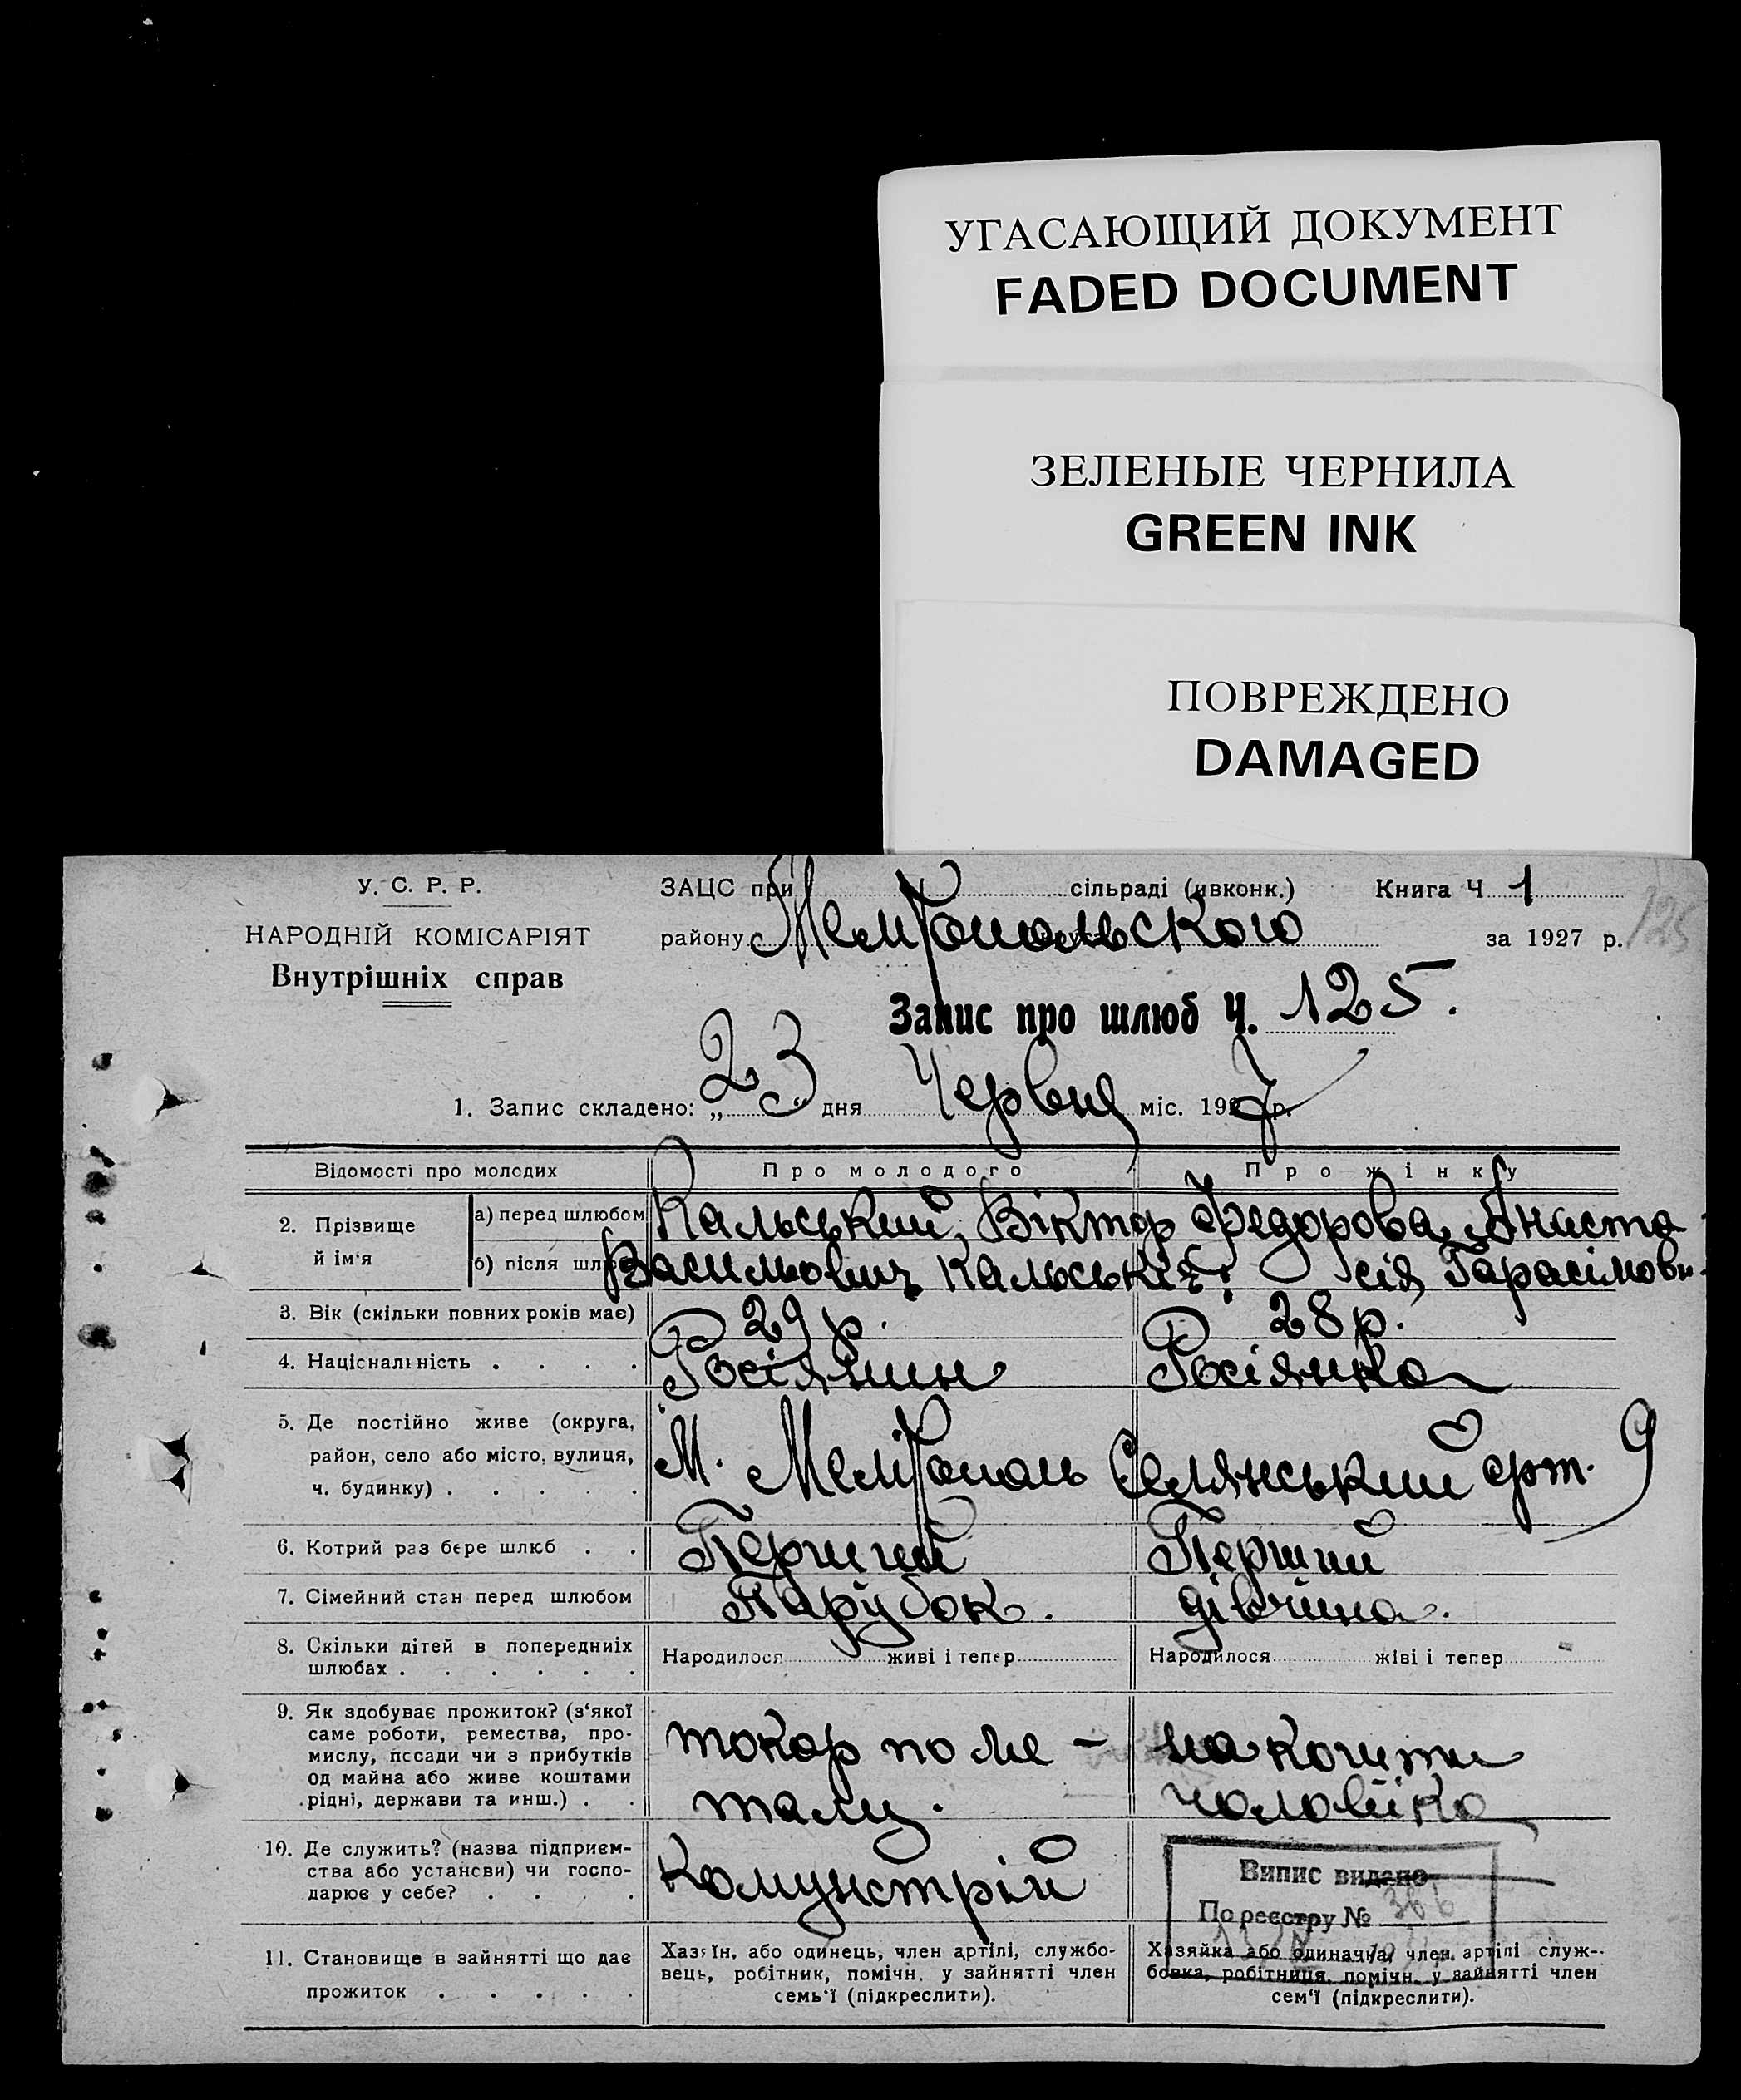 УГАСАЮЩИЙ ДОКУМЕНТ
FADED DOCUMENT
ЗЕЛЕНЫЕ ЧЕРНИЛА
GREEN INK
ПОВРЕЖДЕНО
DAMAGED
У. С. Р. Р.
НАРОДНІЙ КОМІСАРІЯТ
Внутрішніх справ
ЗАЦС при сільраді (ивконк.) Книга Ч 1
району Мелітопольского за 1927 р. 125
Запис про шлюб Ч. 125.
1. Запис складено: „23“ дня Червня міс. 1927 р.
Відомості про молодих
Про молодого
Про жінку
2. Прізвище й ім'я
а) перед шлюбом
б) після
Кальський, Віктор
Васильович Кальські
Федорова, Анаста
сія Гарасімовн.
3. Вік (скільки повних років має)
29 р.
28 р.
4. Національність . . . .
Росіянин
Росіянка
5. Де постійно живе (округа,
район, село або місто, вулиця,
ч. будинку) . . . . .
М. Мелітополь Селянський 9
6. Котрий раз бере шлюб . .
Перший
Перший
7. Сімейний стан перед шлюбом
Парубок.
дівчина.
8. Скільки дітей в попередниіх
шлюбах . . . . . .
Народилося живі і тепер
Народилося жіві і тепер -
9. Як здобуває прожиток? (з‘якої
саме роботи, ремества, про-
мислу, пссади чи з прибутків
од майна або живе коштами
рідні, держави та инш.) . .
токар по ме -
талу.
на кошти
чоловіка
10. Де служить? (назва підприєм-
ства або устансви) чи госпо-
дарює у себе? . . . .
Комунстрій
Випис видано
По реєстру № 386
11. Становище в зайнятті що дає
прожиток . . . . .
Хазяїн, або одинець, член артілі, службо-
вець, робітник, помічн. у зайнятті член
семь‘ї (підкреслити).
Хазяйка або одиначка, член артілі служ-
бовка, робітниця, помічн. у зайнятті член
сем‘ї (підкреслити).